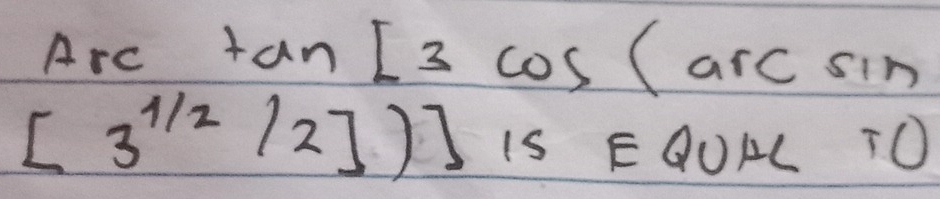 Arc tan [3 cos (arc sin
[3^1/2 /2])] IS EQUAL TO